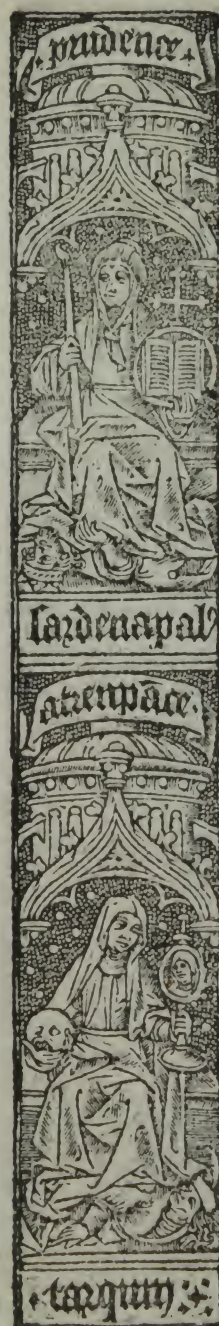 prudence
sardenapal'
atrenpāce
tarquin